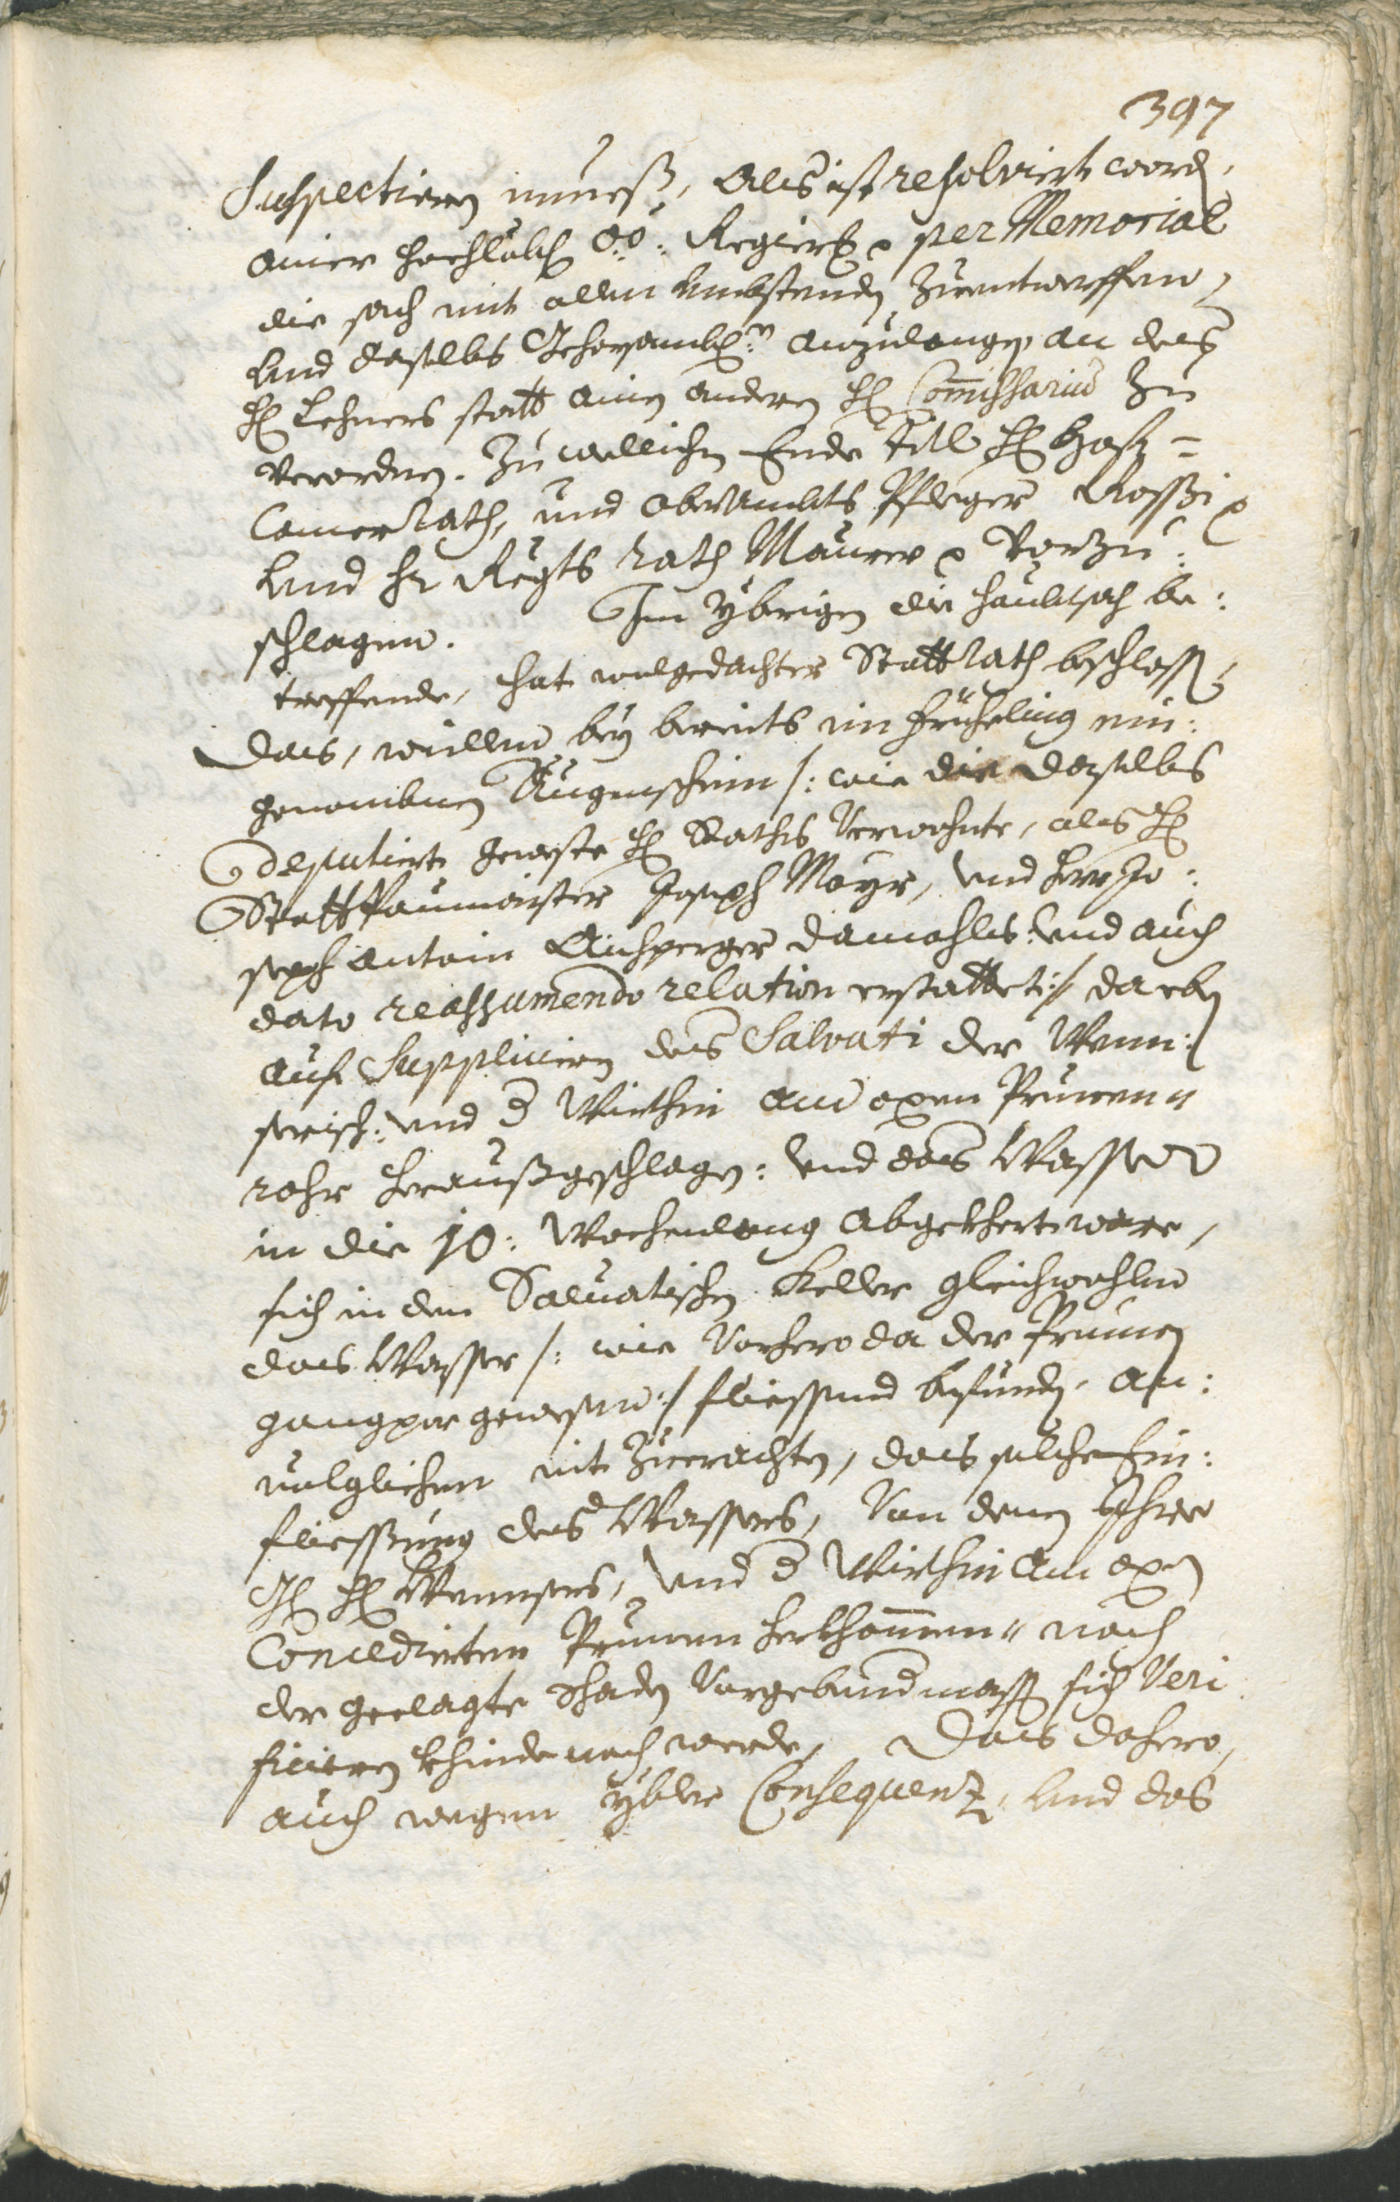 397
Suspectiern mueß, Als ist resolviert word.
ainer hochlobl: o:ö: Regier: per Memorial
die sach mit allen Umbstenden zuentwerffen,
Und daselbs Gehorsambl:n anzulangen an des
H: Lehners statt ainen anderen H: Commissarius zu
verordnen. Zu wellichen Ende titl H: Hof=
Camer Rath, und oberambts Pfleger Rossi
Und Hr Regts Rath Maurer Vorzu:
schlagen. Im ybrigen die haubtsach be:
treffende, hat wolgedachter StattRath beschloss,
Das, weillen bey bereits im früeling ein:
genombnen Augenschein /: wie die daselbs
deputiert geweste H: Raths Verwohnte, als H:
Stattpaumaister Joseph Mayr, und Herr Jo:
seph Antoin Aichperger damahls: und auch
dato reassumendo relation erstattet :/ da eben
auf Supplicirn des Salvati der Wenn:
serisch: und d Wirthin am oxen Prunen
rohr heraußgeschlagen: und das Wasser
in die 10: Wochenlang abgekhert ware,
sich in den Salvatischen Keller gleichwohlen
das Wasser /: wie Vorhero da der Prunen
gangpar gewesen :/ fliessend befunden, An:
uolglichen nit zuerachten, das solche Ein:
fliessung des Wassers, Von denen Ihro
H: Wennsers, und d Wirthin am oxen
Concedierten Prunnen herkhommen noch
der geclagte Schaden Vorgebund mass sich Veri
ficiern khinde noch werde, Das dahero,
auch wegen ybler Consequenz, und das